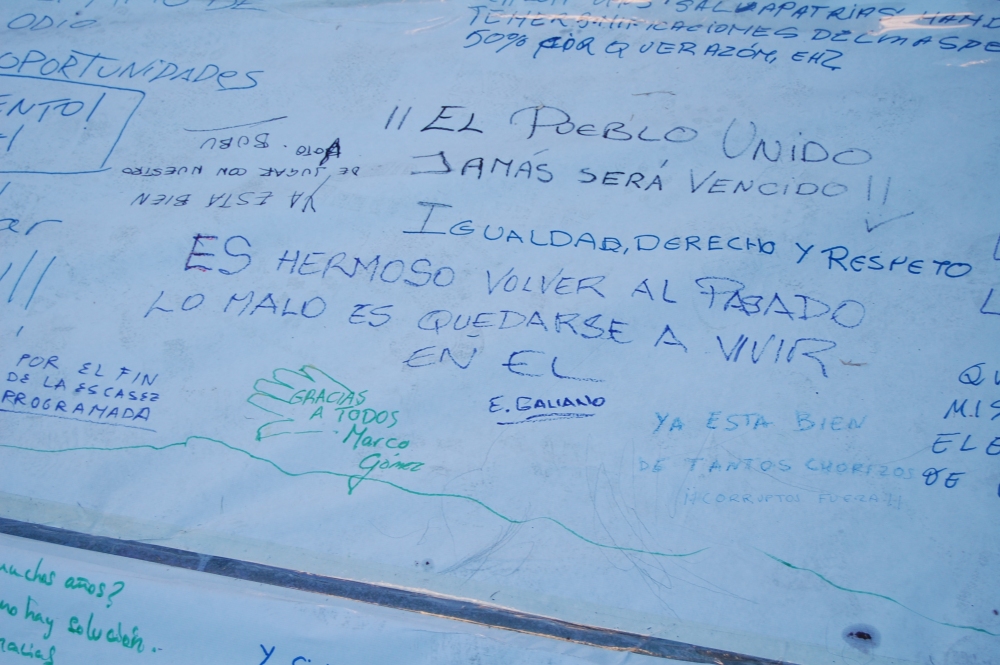 ODIO
OPORTUNIDADES
SALVAPATRIAS
TENER
50% POR QUE RAZÓN, EH?
¡¡ EL PUEBLO UNIDO
JAMÁS SERÁ VENCIDO !!
YA ESTA BIEN
DE JUGAR CON NUESTRO
BUBU
IGUALDAD, DERECHO Y RESPETO
ES HERMOSO VOLVER AL PASADO
LO MALO ES QUEDARSE A VIVIR
EN EL
E. GALIANO
POR EL FIN
DE LA ESCASEZ
PROGRAMADA
GRACIAS
A TODOS
Marco
Gómez
YA ESTA BIEN
DE TANTOS CHORIZOS
¡¡CORRUPTOS FUERA!!
QU
MIS
ELE
DE
muchos años?
no hay solución..
racias
Y